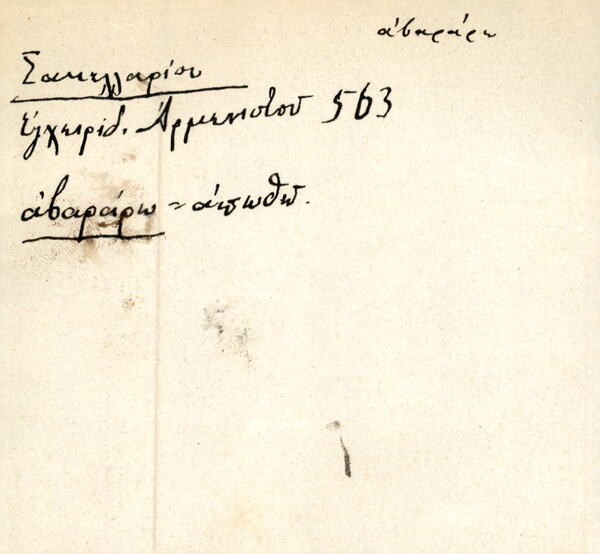 ἀβαράρω
Σακελλαρίου
Ἐγχειρίδ. Ἁρμενιστοῦ 563
ἀβαράρω = ἀπωθῶ.